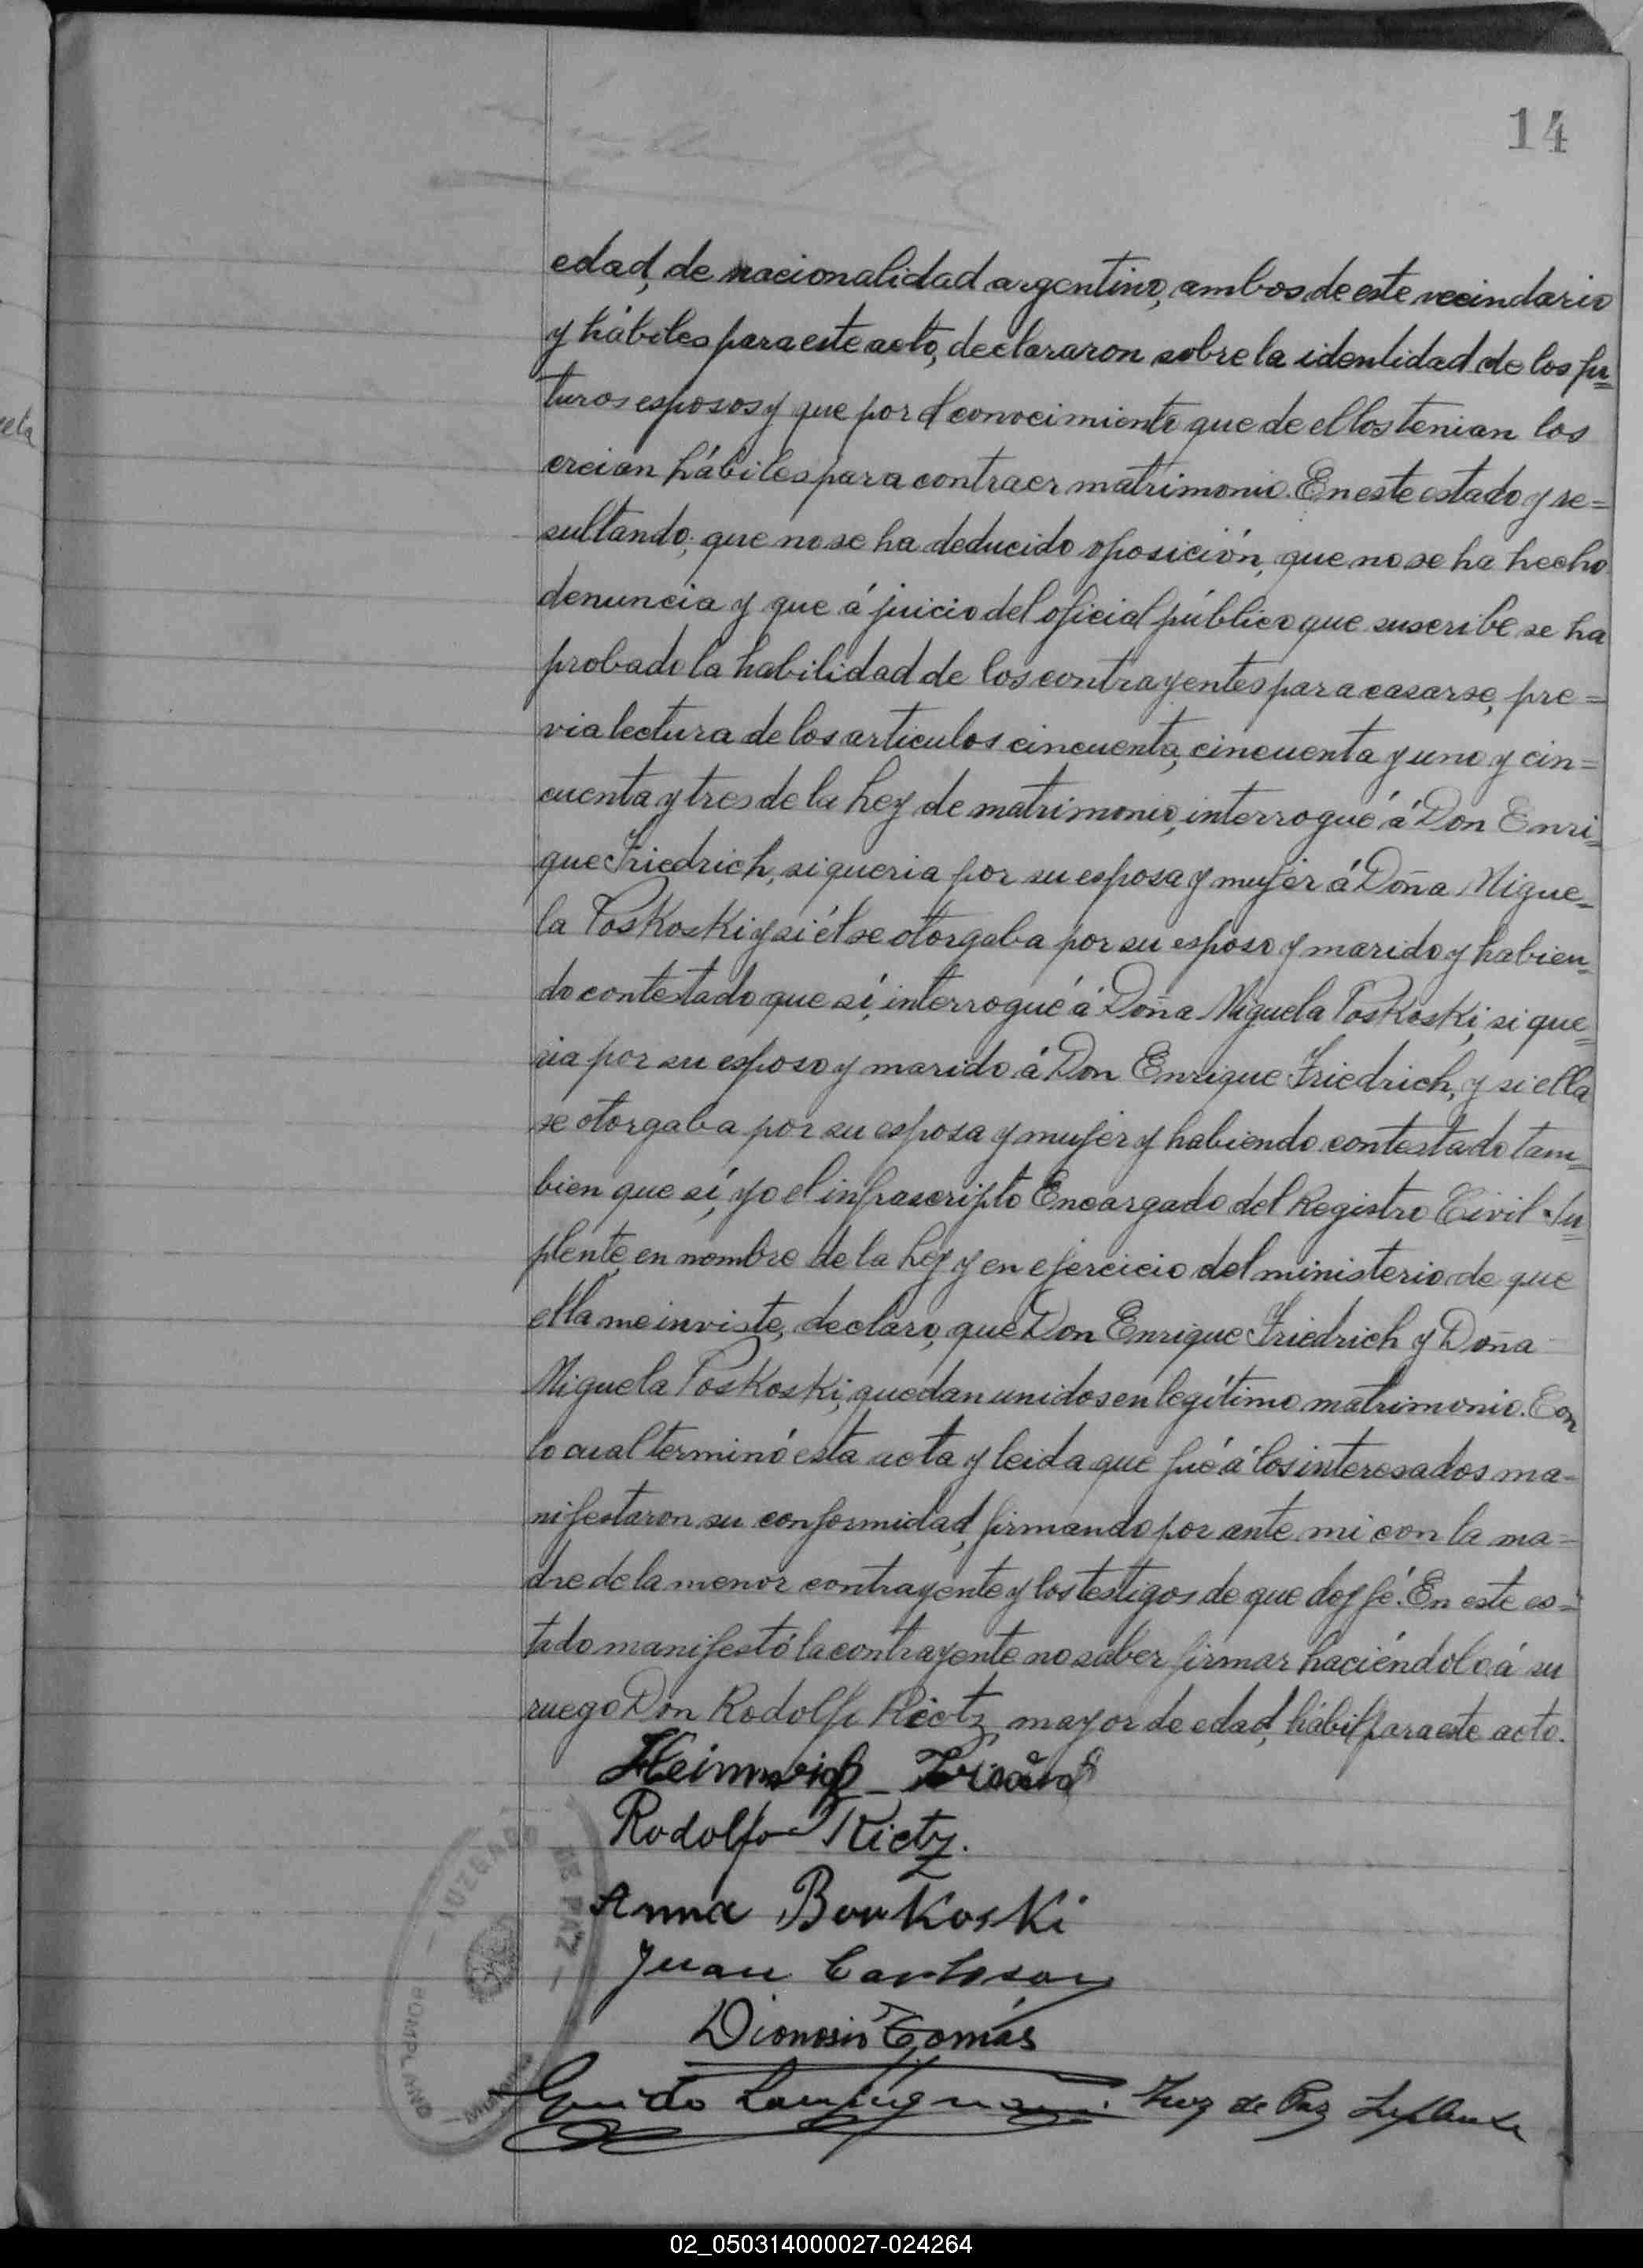 14
edad, de nacionalidad argentino, ambos de este vecindario
y hábiles para este acto, declararon sobre la identidad de los fu=
turos esposos y que por el conocimiento que de ellos tenian los
creian hábiles para contraer matrimonio. En este estado y re=
sultando; que no se ha deducido oposición, que no se ha hecho
denuncia y que á juicio del oficial público que suscribe se ha
probado la habilidad de los contrayentes para casarse, pre=
via lectura de los articulos cincuenta, cincuenta y uno y cin=
cuenta y tres de la Ley de matrimonio, interrogué á Don Enri=
que Friedrich, si queria por su esposa y mujer á Doña Migue=
la Poskoski y si él se otorgaba por su esposo y marido y habien=
do contestado que sí, interrogué á Doña Miguela Poskoski, si que=
ria por su esposo y marido á Don Enrique Friedrich, y si ella
se otorgaba por su esposa y mujer y habiendo contestado tam=
bien que sí, yo el infrascripto Encargado del Registro Civil Su=
plente, en nombre de la Ley y en ejercicio del ministerio de que
ella me inviste, declaro, que Don Enrique Friedrich y Doña
Miguela Poskoski, quedan unidos en legítimo matrimonio. Con
lo cual terminó esta acta y leida que fué á los interesados ma=
nifestaron su conformidad, firmando por ante mi con la ma=
dre de la menor contrayente y los testigos de que doy fé. En este es=
tado manifestó la contrayente no saber firmar haciéndolo á su
ruego Don Rodolfo Rietz, mayor de edad, hábil para este acto.
Rodolfo Rietz.
Anna Borkoski
Juan Carlsson
Dionosio Tomás
Guido Lampugnani. Juez de Paz Suplente
JUZGADO DE PAZ
BOMPLAND
MISIONES
02_050314000027-024264